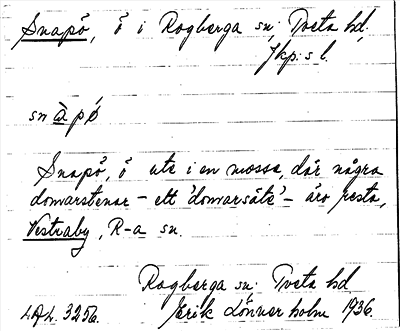 Snapö, ö i Rogberga sn, Tveta hd,
Jkp:s l.
snàpó
Snapö, ö ute i en mosse, där några
domarstenar – ett 'domarsäte' – äro resta,
Vestraby, R-a sn.
Rogberga sn Tveta hd
LAL. 3256. Erik Lönnerholm 1936.